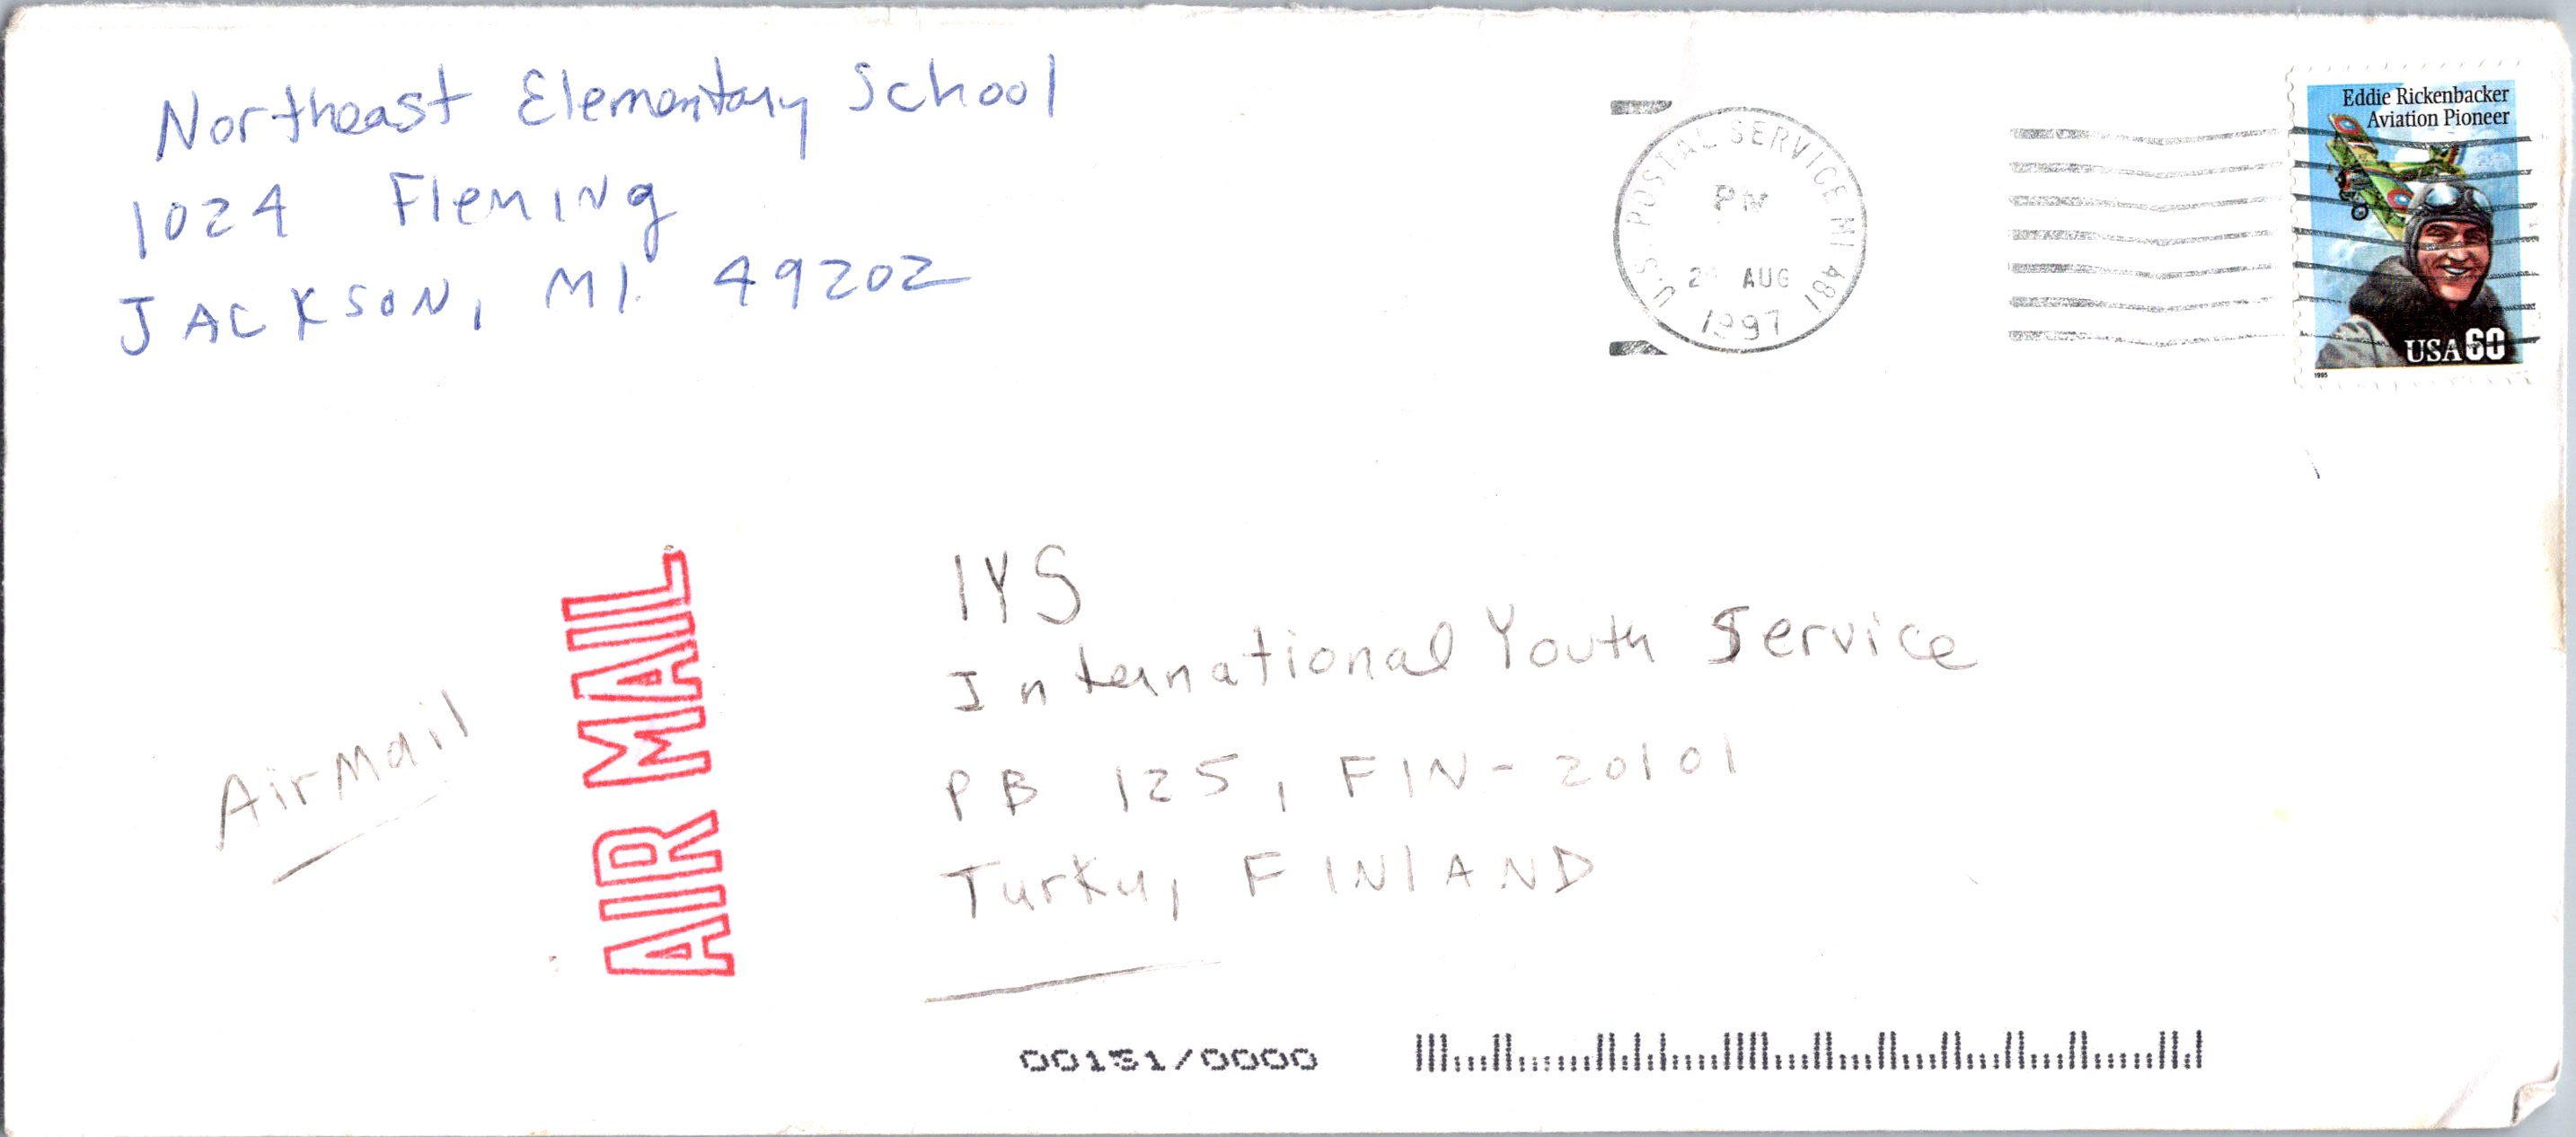 Northeast Elementary School
1024 Fleming
JACKSON, MI. 49202
U.S. POSTAL SERVICE MI 481
PM
AUG
1997
Eddie Rickenbacker
Aviation Pioneer
USA60
1995
Airmail
AIR MAIL
IYS
International Youth Service
PB 125, FIN-20101
Turku, FINLAND